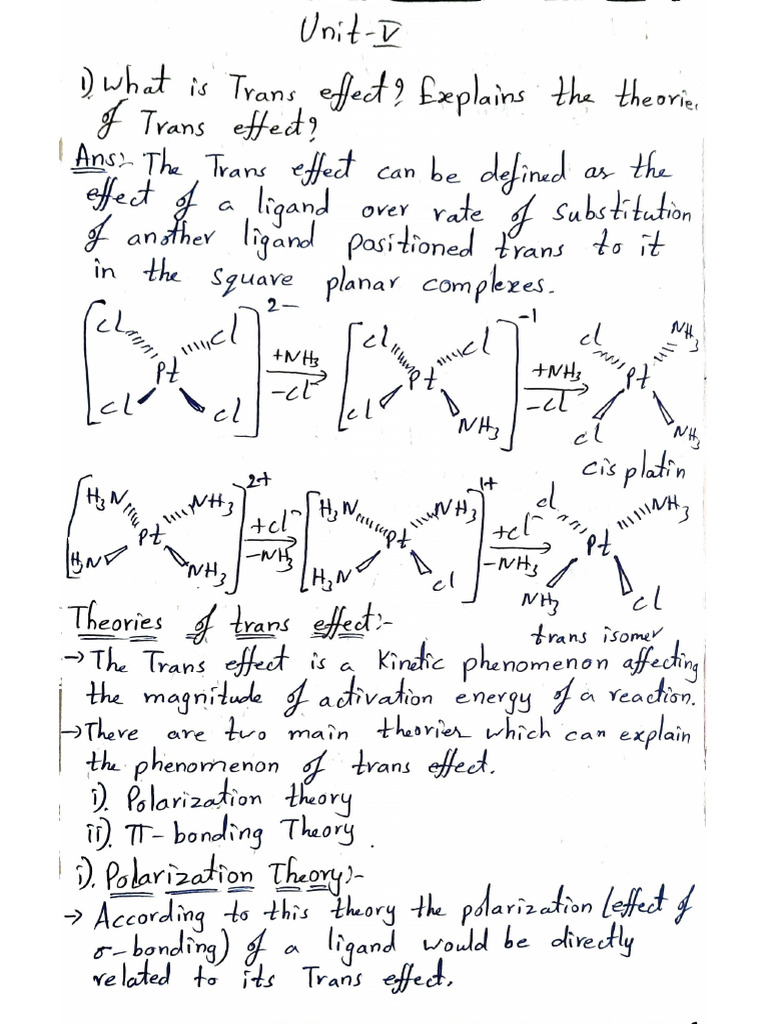 Unit-V
1) What is Trans effect? Explains the theories
of Trans effect?
Ans:- The Trans effect can be defined as the
effect of a ligand over rate of substitution
of another ligand positioned trans to it
in the square planar complexes.
[Cl Cl Pt Cl Cl]2- +NH3 -Cl- [Cl Cl Pt Cl NH3]-1 +NH3 -Cl- Cl NH3 Pt Cl NH3
cis platin
[H3N NH3 Pt H3N NH3]2+ +Cl- -NH3 [H3N NH3 Pt H3N Cl]1+ +Cl- -NH3 Cl NH3 Pt NH3 Cl
trans isomer
Theories of trans effect:-
→ The Trans effect is a Kinetic phenomenon affecting
the magnitude of activation energy of a reaction.
→ There are two main theories which can explain
the phenomenon of trans effect.
i). Polarization theory
ii). π-bonding Theory.
i). Polarization Theory:-
→ According to this theory the polarization (effect of
σ-bonding) of a ligand would be directly
related to its Trans effect.